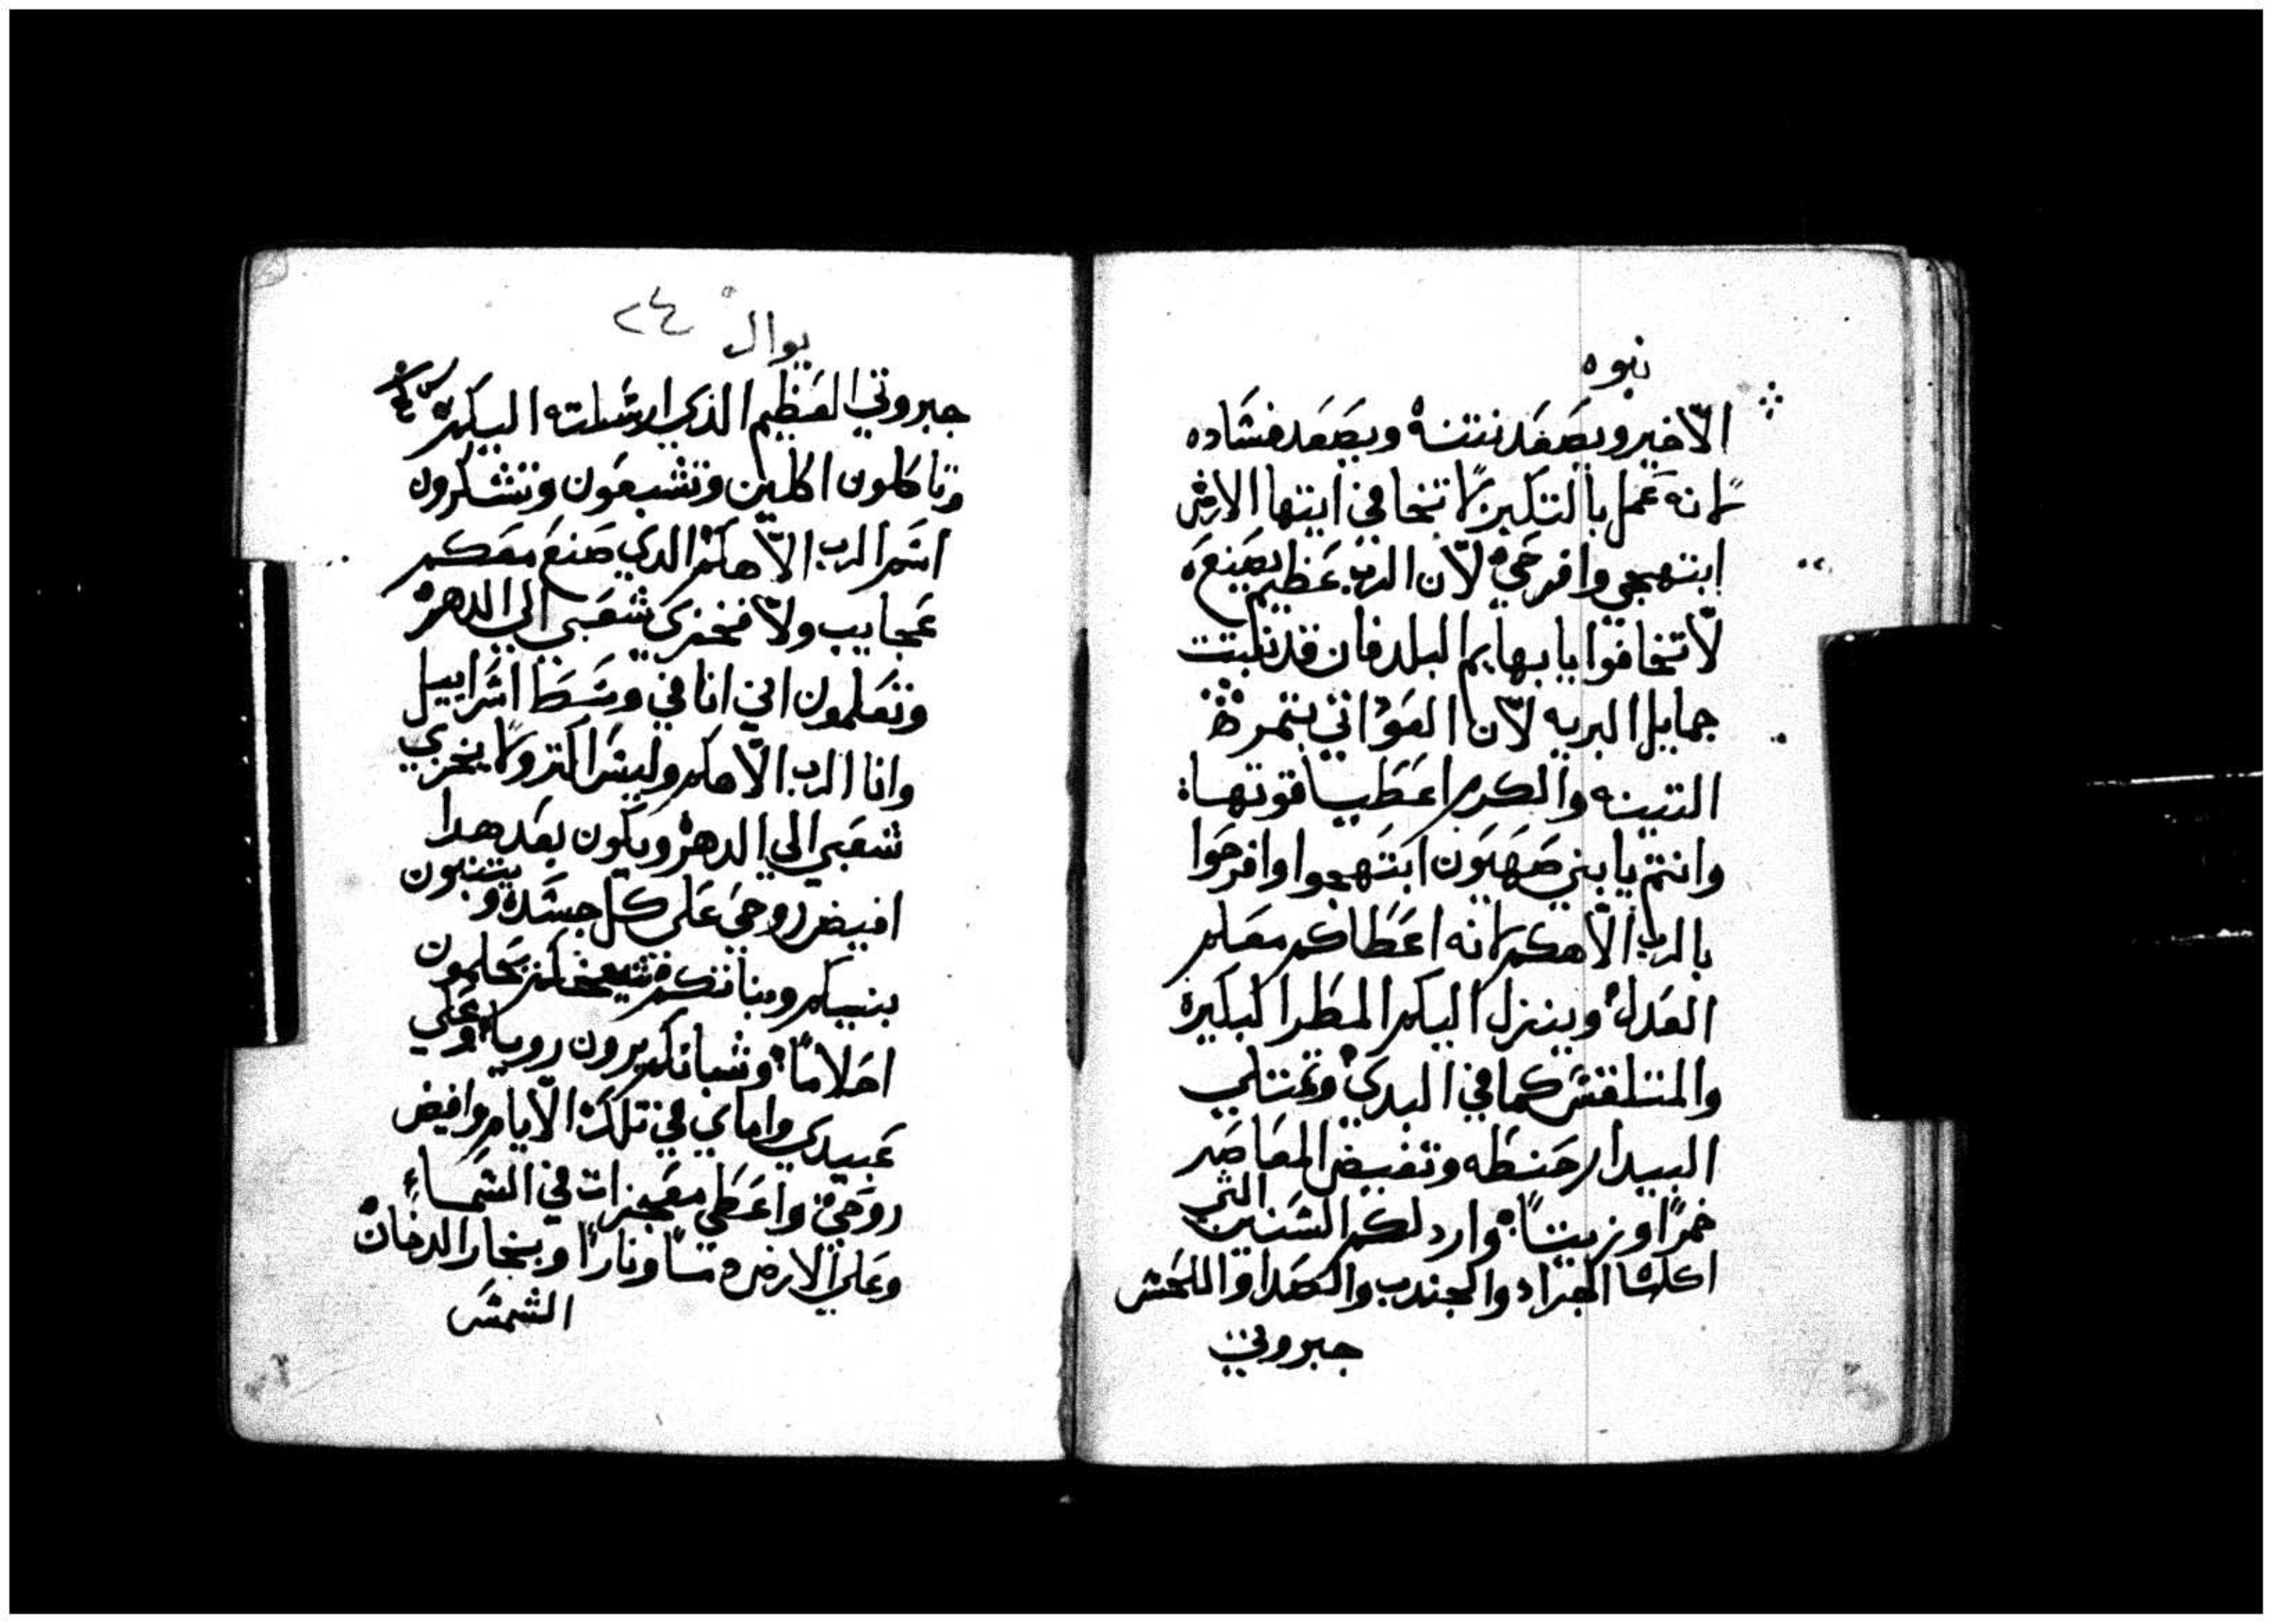 نبوه
الاخير ويصعد نتنه ويصعد فساده
لانه عمل بالتكبر لا تخافي ايتها الارض
ابتهجي وافرحي لان الرب عظم بصنعه
لا تخافوا يا بهايم البلد فان قد نبتت
جمايل البريه لان العواتي بتمرهن
التينه والكرم اعطيا قوتها
وانتم يا بني صهيون ابتهجوا وافرحوا
بالرب الاهكم لانه اعطاكم معلم
العدل وينزل اليكم المطر البكيره
والمتلقش كما في البدي وتمتلي
البيدار حنطه وتفيض المعاصر
خمرًا وزيتًا وارد لكم السنين التي
اكلها الجراد والجندب والصدا واللحش
جبروتي
يوال ٢٤
جبروتي العظيم الذي ارسلته اليكم
وتاكلون اكلين وتشبعون وتشكرون
اسم الرب الاهكم الدي صنع معكم
عجايب ولا يخزي شعبي الي الدهر
وتعلمون اني انا في وسط اسراييل
وانا الرب الاهكم وليس اكتر ولا يخزي
شعبي الي الدهر ويكون بعد هدا
افيض روحي علي كل جسد و يتنبون
بنيكم وبناتكم شيخانكم يحلمون
احلامًا وشبانكم يرون رويا وعلي
عبيدي واماي في تلك الايام وافيض
روحي واعطي معجزات في السماء
وعلي الارض دمًا ونارًا وبخار الدخان
الشمس